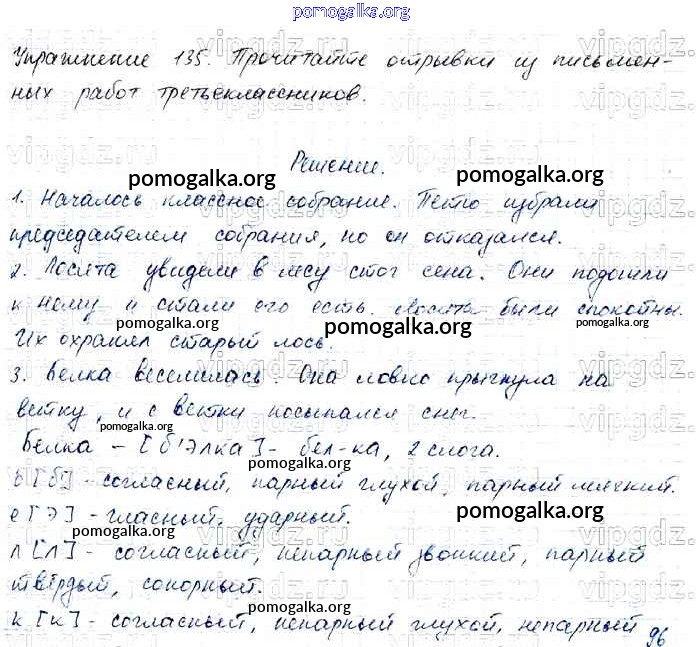 pomogalka.org
Упражнение 135. Прочитайте отрывки из письмен-
ных работ третьеклассников.
Решение.
pomogalka.org
1. Началось классное собрание. Петю избрали
председателем собрания, но он отказался.
2. Лосята увидели в лесу стог сена. Они подошли
к нему и стали его есть. Лосята были спокойны.
pomogalka.org pomogalka.org pomogalka.org
Их охранял старый лось.
3. Белка веселилась. Она ловко прыгнула на
ветку, и с ветки посыпался снег.
pomogalka.org
Белка – [б'элка] – бел-ка, 2 слога.
pomogalka.org
б [б'] – согласный, парный глухой, парный мягкий.
е [э] – гласный, ударный.
pomogalka.org
л [л] – согласный, непарный звонкий, парный
твёрдый, сонорный.
pomogalka.org
к [к] – согласный, непарный глухой, непарный
96